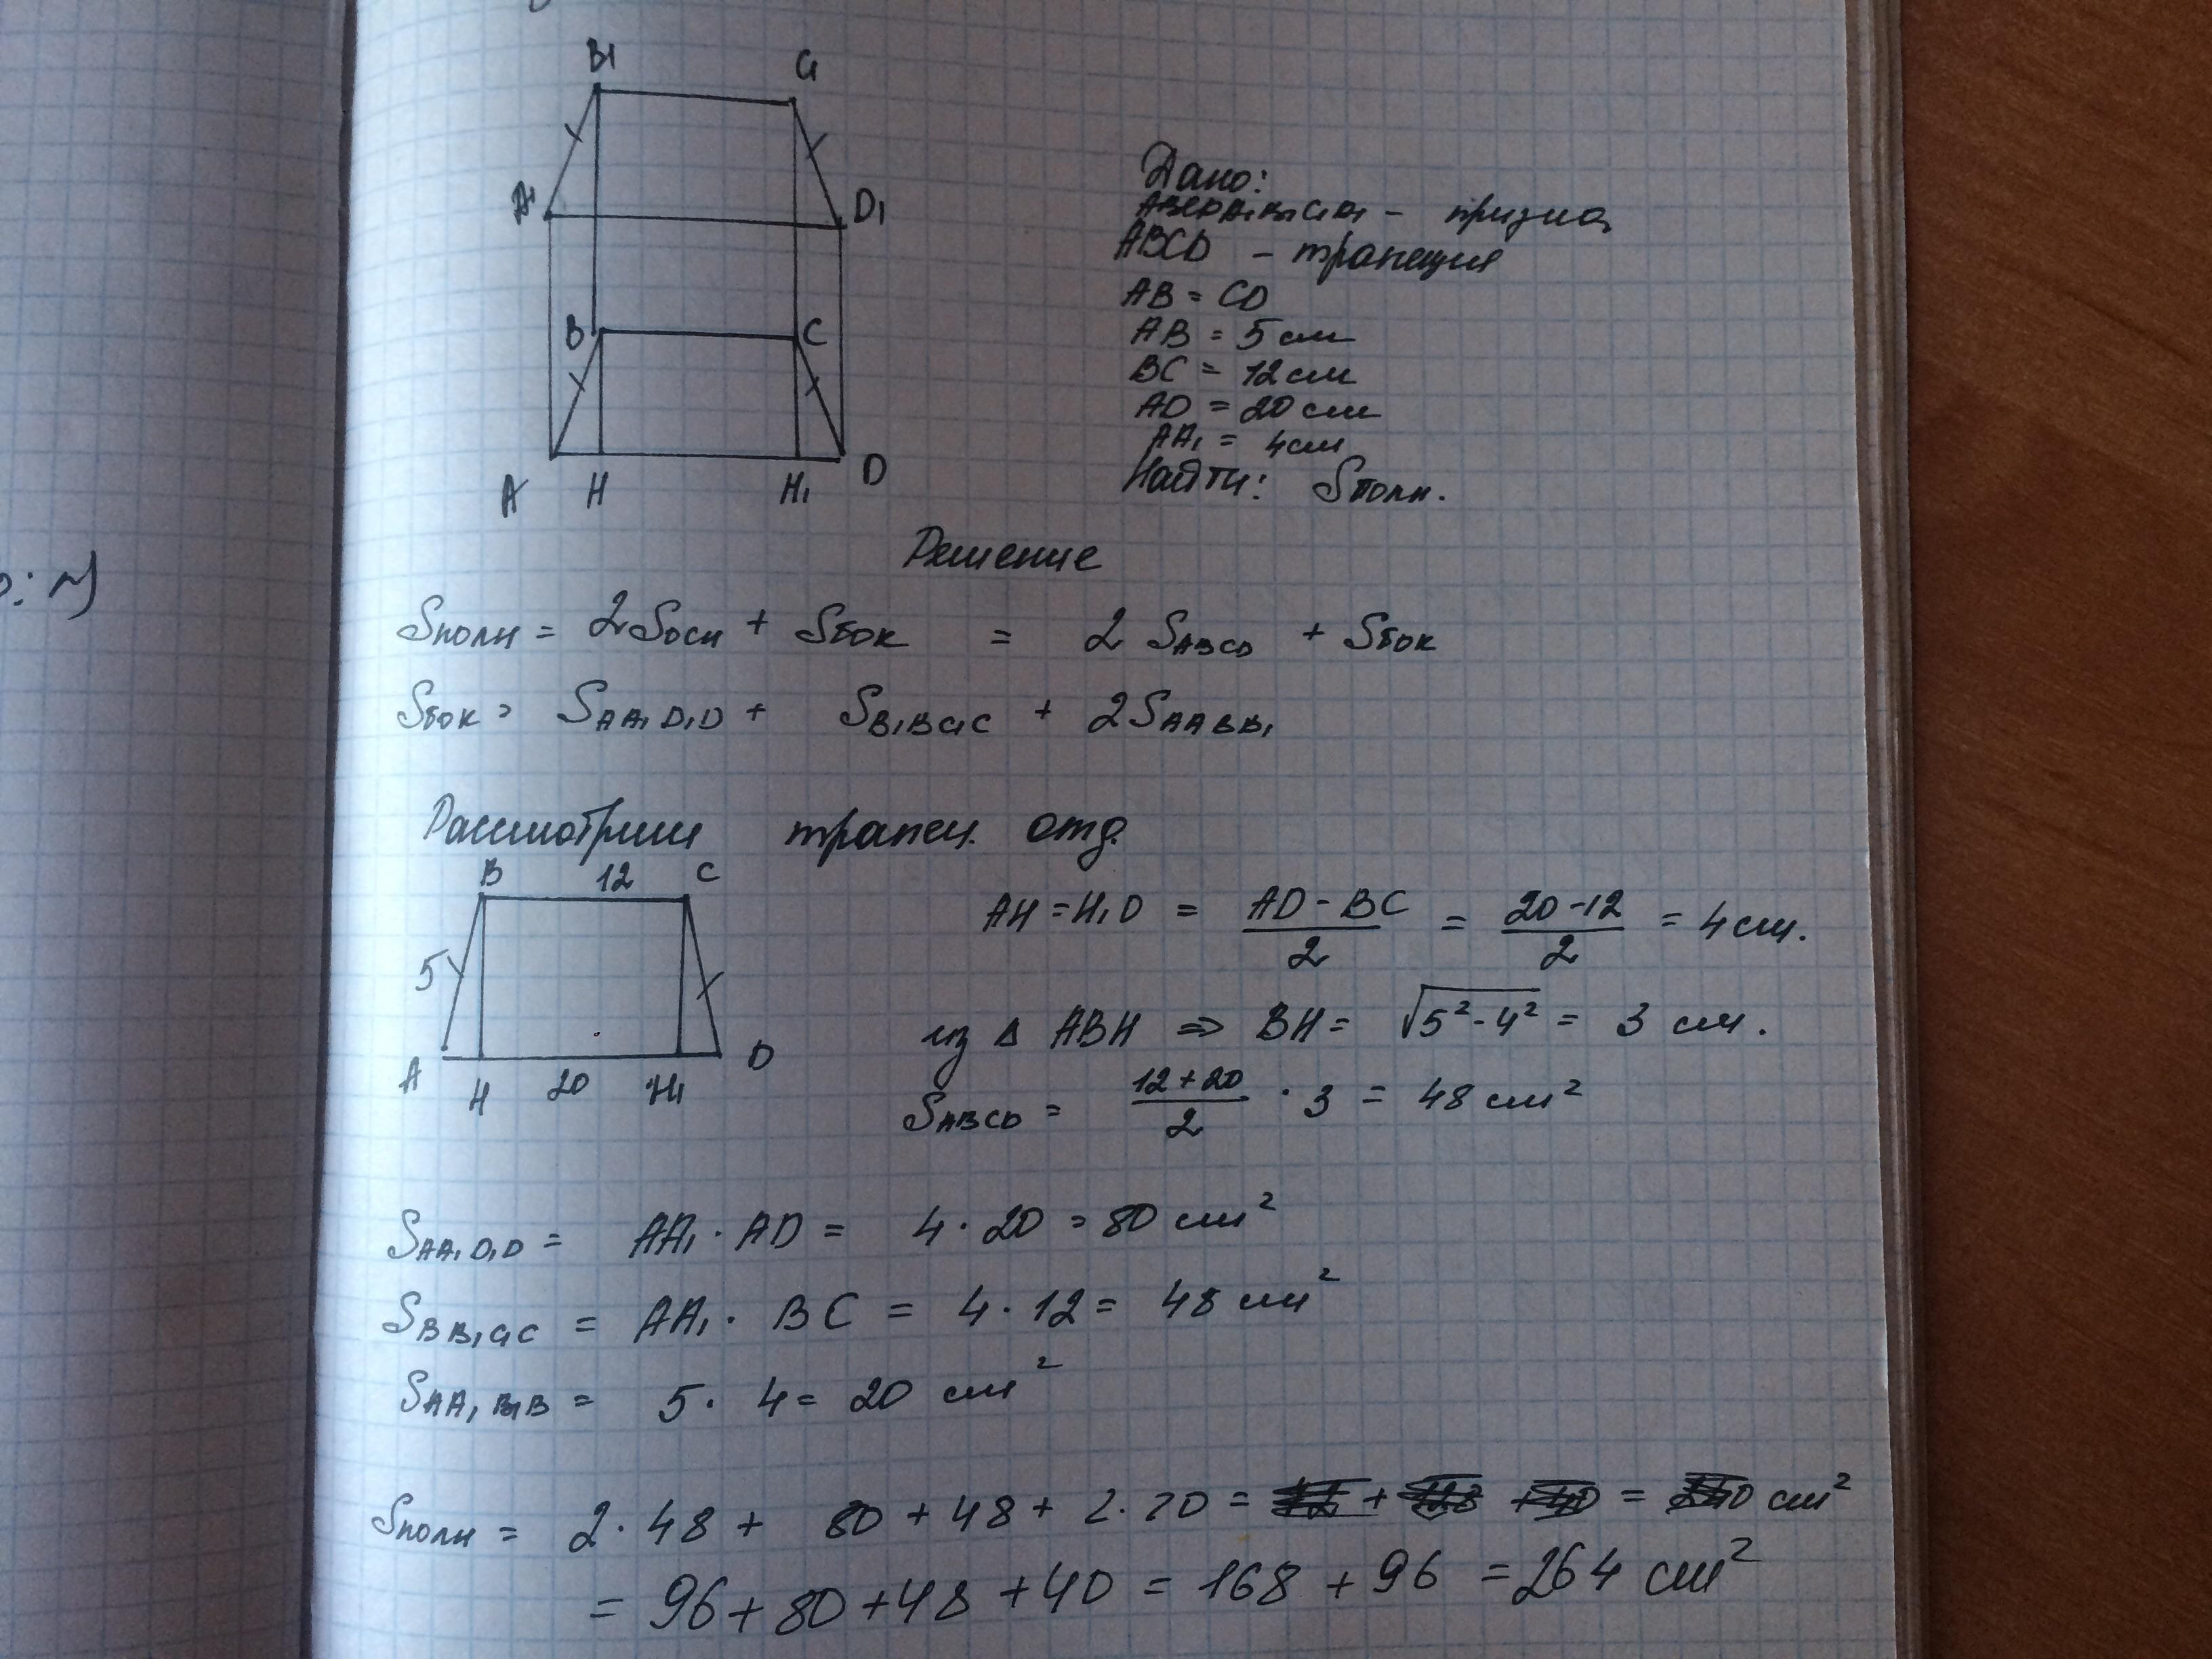 B₁ C₁
A₁ D₁
B C
A H H₁ D
Дано:
ABCDA₁B₁C₁D₁ – призма
ABCD – трапеция
AB = CD
AB = 5 см
BC = 12 см
AD = 20 см
AA₁ = 4 см
Найти: Sполн.
Решение
Sполн = 2Sосн + Sбок = 2 SABCD + Sбок
Sбок = SAA₁D₁D + SB₁BC₁C + 2SAABB₁
Рассмотрим трапец. отд.
B 12 C
5
A H 20 H₁ D
AH = H₁D = (AD - BC)/2 = (20 - 12)/2 = 4 см.
из Δ ABH ⇒ BH = √(5² - 4²) = 3 см.
SABCD = (12 + 20)/2 · 3 = 48 см²
SAA₁D₁D = AA₁ · AD = 4 · 20 = 80 см²
SBB₁C₁C = AA₁ · BC = 4 · 12 = 48 см²
SAA₁B₁B = 5 · 4 = 20 см²
Sполн = 2 · 48 + 80 + 48 + 2 · 20 = + + = см²
= 96 + 80 + 48 + 40 = 168 + 96 = 264 см²